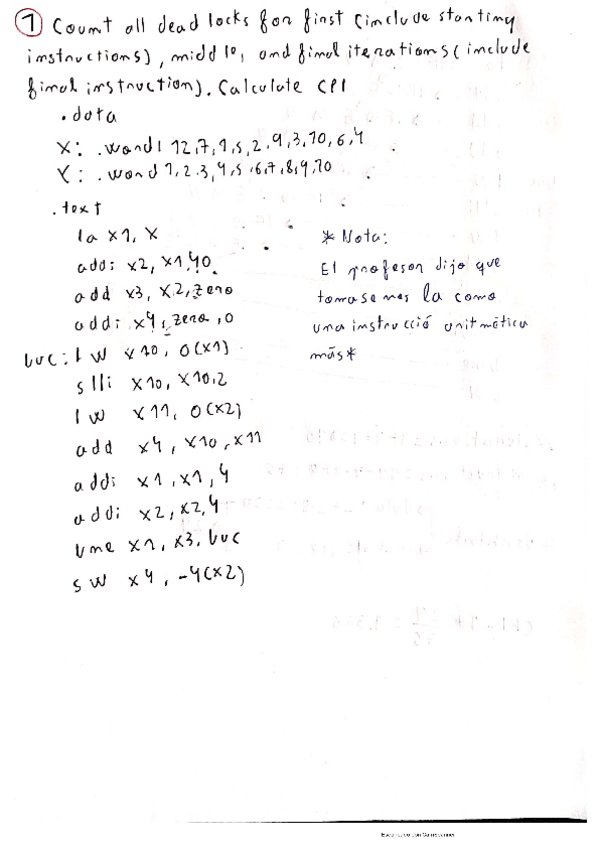 1 Count all dead locks for first (include starting
instructions), middle, and final iterations (include
final instruction). Calculate CPI
.data
X: .word 12,7,1,5,2,9,3,10,6,4
Y: .word 1,2,3,4,5,6,7,8,9,10
.text
la x1, X
addi x2, x1,40
add x3, x2, zero
addi x4, zero, 0
buc: lw x10, 0(x1)
slli x10, x10,2
lw x11, 0(x2)
add x4, x10, x11
addi x1, x1, 4
addi x2, x2, 4
bne x1, x3, buc
sw x4, -4(x2)
* Nota:
El profesor dijo que
tomasemos la como
una instrucció aritmética
más*
Escaneado con CamScanner